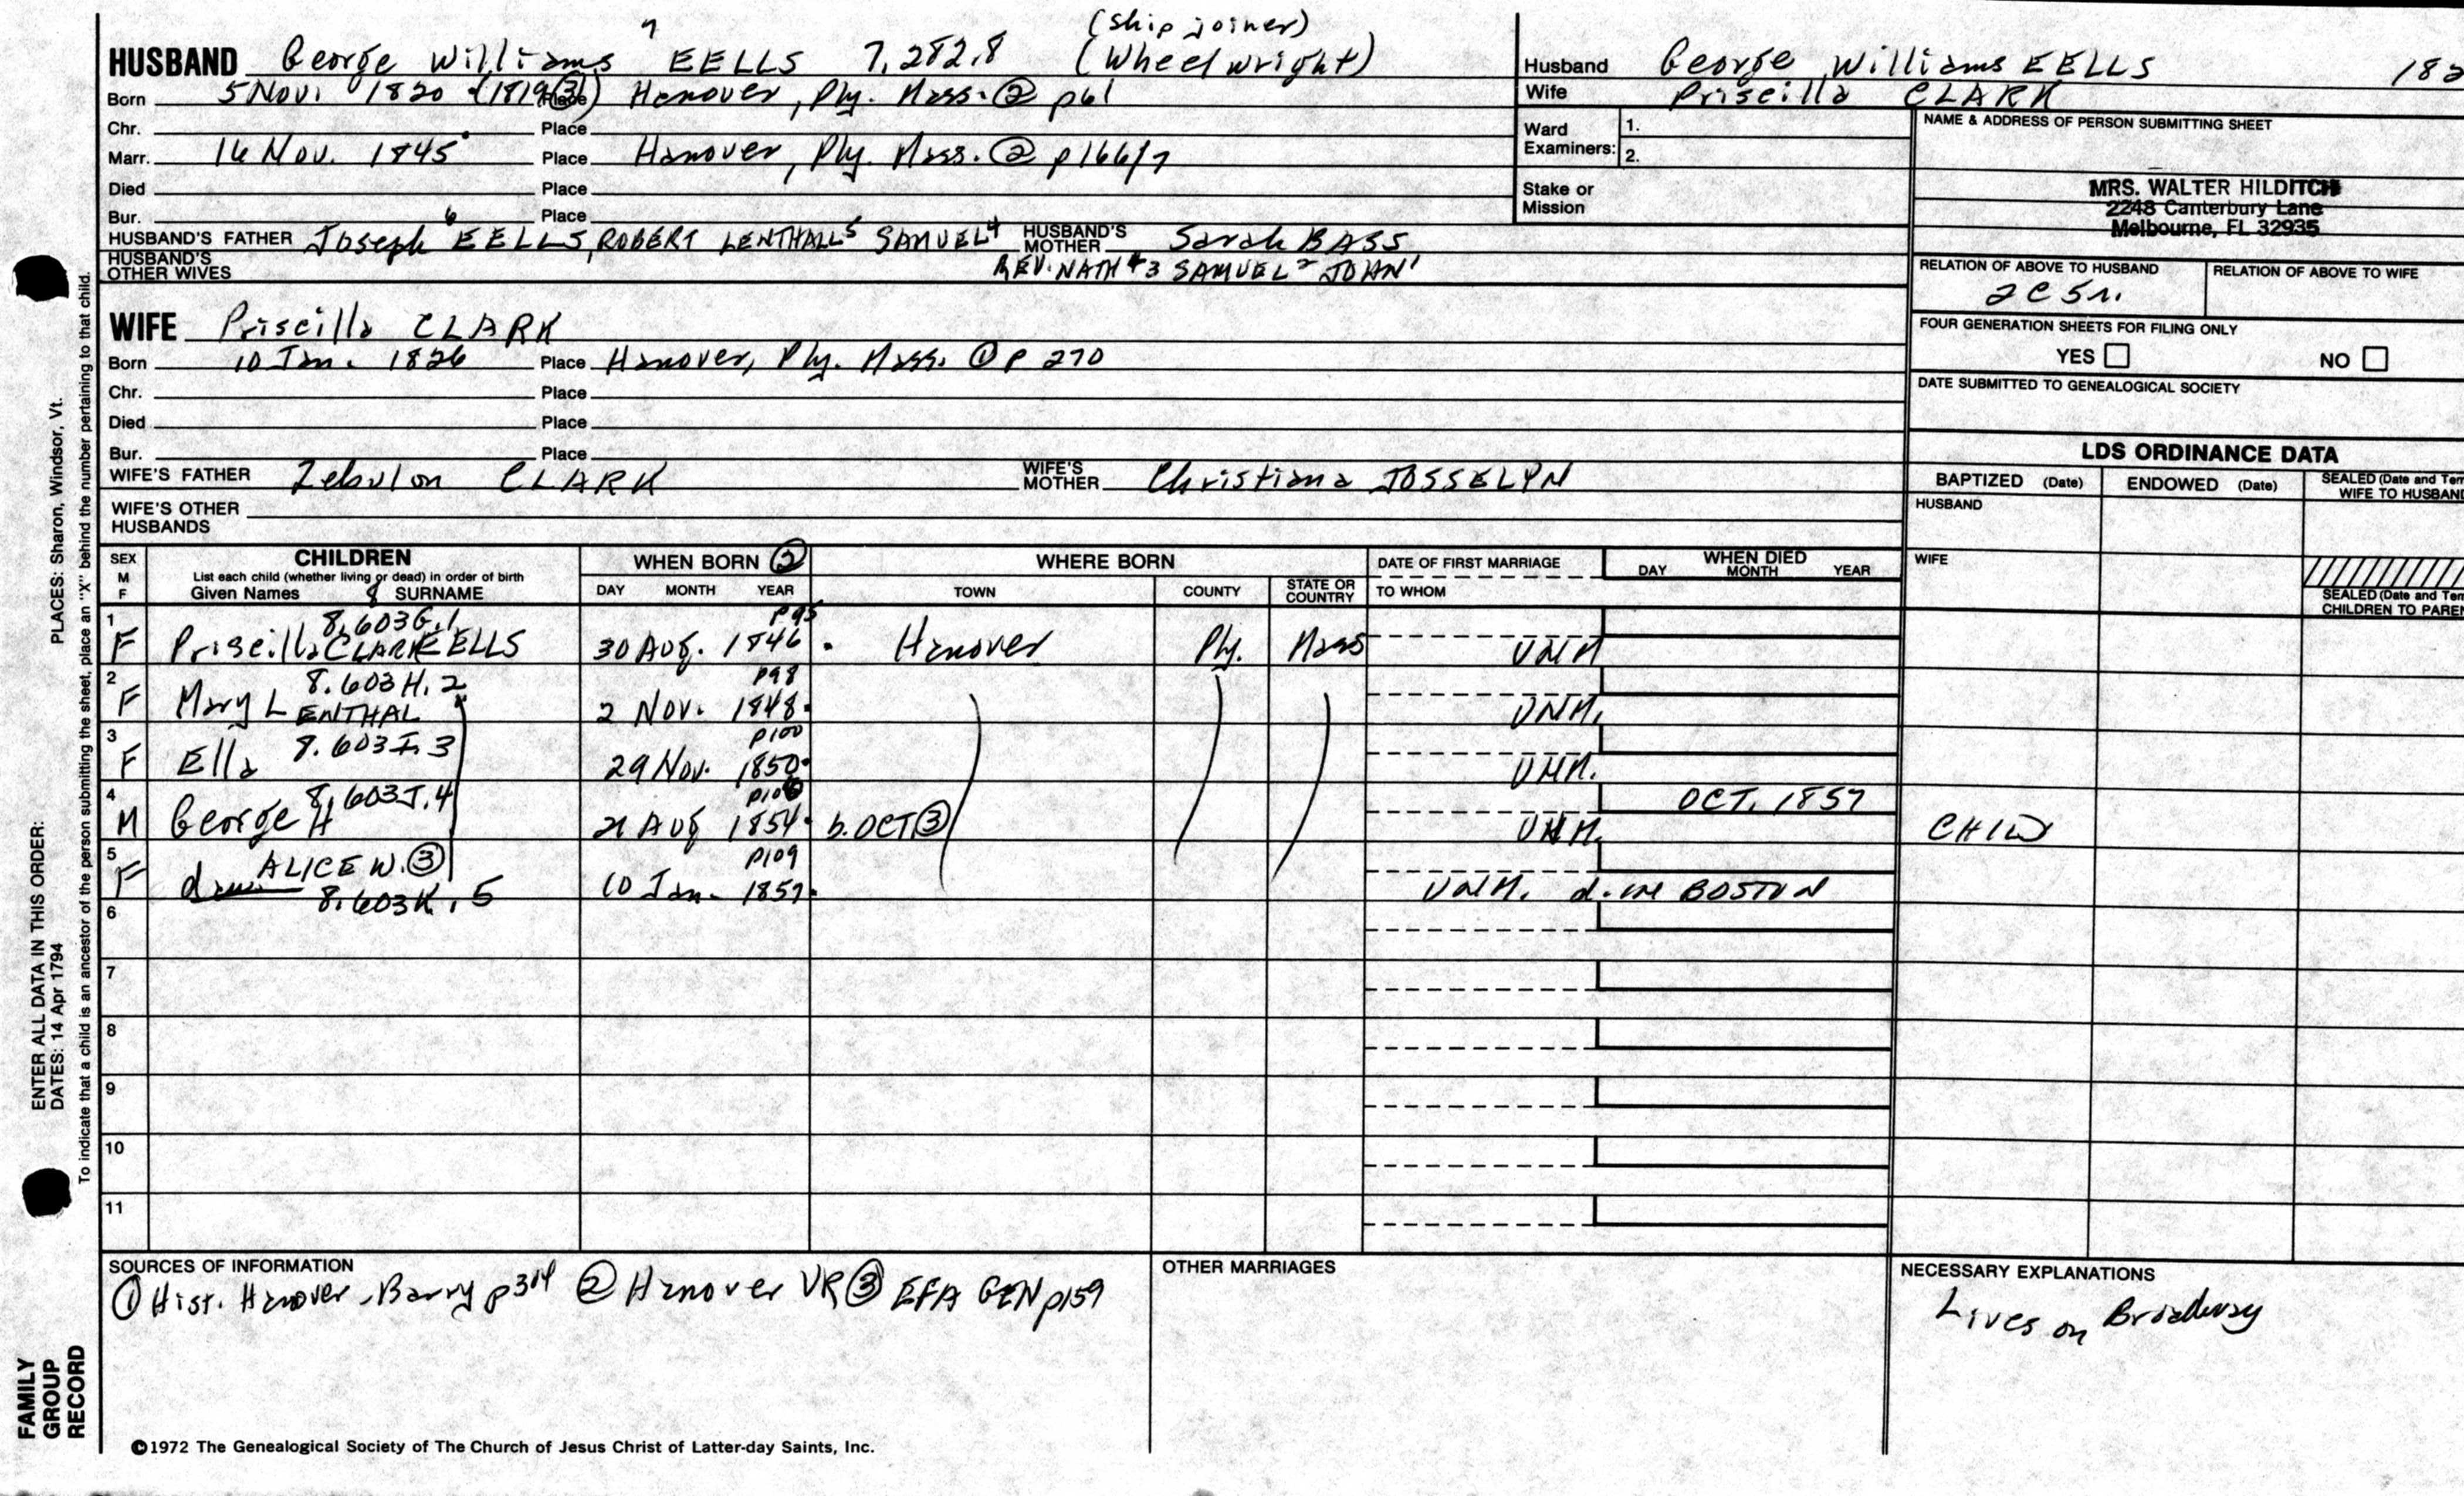 (ship joiner)
HUSBAND George Williams 7 EELLS 7,282.8 (Wheelwright)
Born 5 Nov. 1820 (1819③) Place Hanover, Ply. Mass. ② p61
Chr. Place
Marr. 16 Nov. 1845 Place Hanover, Ply. Mass. ② p166/7
Died Place
Bur. Place
HUSBAND'S FATHER Joseph 6 EELLS, ROBERT LENTHALL 5 SAMUEL 4 HUSBAND'S MOTHER Sarah BASS
HUSBAND'S OTHER WIVES REV. NATH 3 SAMUEL 2 JOHN 1
WIFE Priscilla CLARK
Born 10 Jan. 1826 Place Hanover, Ply. Mass. ① p 270
Chr. Place
Died Place
Bur. Place
WIFE'S FATHER Zebulon CLARK WIFE'S MOTHER Christiana JOSSELYN
WIFE'S OTHER HUSBANDS
Husband George Williams EELLS 182
Wife Priscilla CLARK
Ward Examiners: 1.
2.
Stake or Mission
NAME & ADDRESS OF PERSON SUBMITTING SHEET
MRS. WALTER HILDITCH
2248 Canterbury Lane
Melbourne, FL 32935
RELATION OF ABOVE TO HUSBAND RELATION OF ABOVE TO WIFE
2C5r.
FOUR GENERATION SHEETS FOR FILING ONLY
YES NO
DATE SUBMITTED TO GENEALOGICAL SOCIETY
LDS ORDINANCE DATA
BAPTIZED (Date) ENDOWED (Date) SEALED (Date and Tem
WIFE TO HUSBAND
HUSBAND
WIFE
SEALED (Date and Tem
CHILDREN TO PAREN
SEX M F CHILDREN WHEN BORN ② WHERE BORN DATE OF FIRST MARRIAGE WHEN DIED
List each child (whether living or dead) in order of birth
Given Names 8 SURNAME DAY MONTH YEAR TOWN COUNTY STATE OR COUNTRY TO WHOM DAY MONTH YEAR
1 8.603G.1 p95
F Priscilla CLARK EELLS 30 Aug. 1846 Hanover Ply. Mass UNM
2 8.603H.2 p98
F Mary LENTHAL 2 Nov. 1848 UNM.
3 8.603I.3 p100
F Ella 29 Nov. 1850 UNM.
4 8.603J.4 OCT. 1857
M George H 21 Aug 1854 b. OCT③ UNM. CHILD
5 ALICE W. ③ p109
F 8.603K.5 10 Jan. 1857 UNM. d. in BOSTON
6
7
8
9
10
11
SOURCES OF INFORMATION
① Hist. Hanover - Barry p314 ② Hanover VR ③ EFA GEN p159
OTHER MARRIAGES
NECESSARY EXPLANATIONS
Lives on Broadway
©1972 The Genealogical Society of The Church of Jesus Christ of Latter-day Saints, Inc.
FAMILY GROUP RECORD
ENTER ALL DATA IN THIS ORDER:
DATES: 14 Apr 1794
PLACES: Sharon, Windsor, Vt.
To indicate that a child is an ancestor of the person submitting the sheet, place an "X" behind the number pertaining to that child.